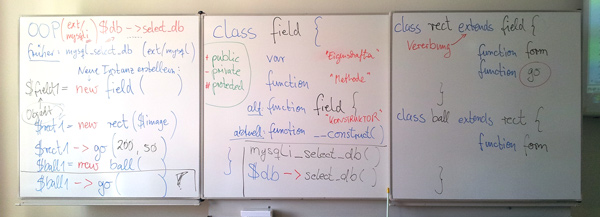 OOP (ext/mysqli) $db -> select_db
früher: mysql_select_db (ext/mysql)
Neue Instanz erstellen:
$field1 = new field ( )
Objekt
$rect1 = new rect ($image)
$rect1 -> go (200, 50)
$ball1 = new ball ( )
$ball1 -> go ( )
class field {
+ public
- private
# protected
var "Eigenschaften"
function "Methode"
alt: function field {
"KONSTRUKTOR"
aktuell: function __construct()
}
mysqli_select_db( )
$db -> select_db( )
class rect extends field {
Vererbung
function form
function go
}
class ball extends rect {
function form
}